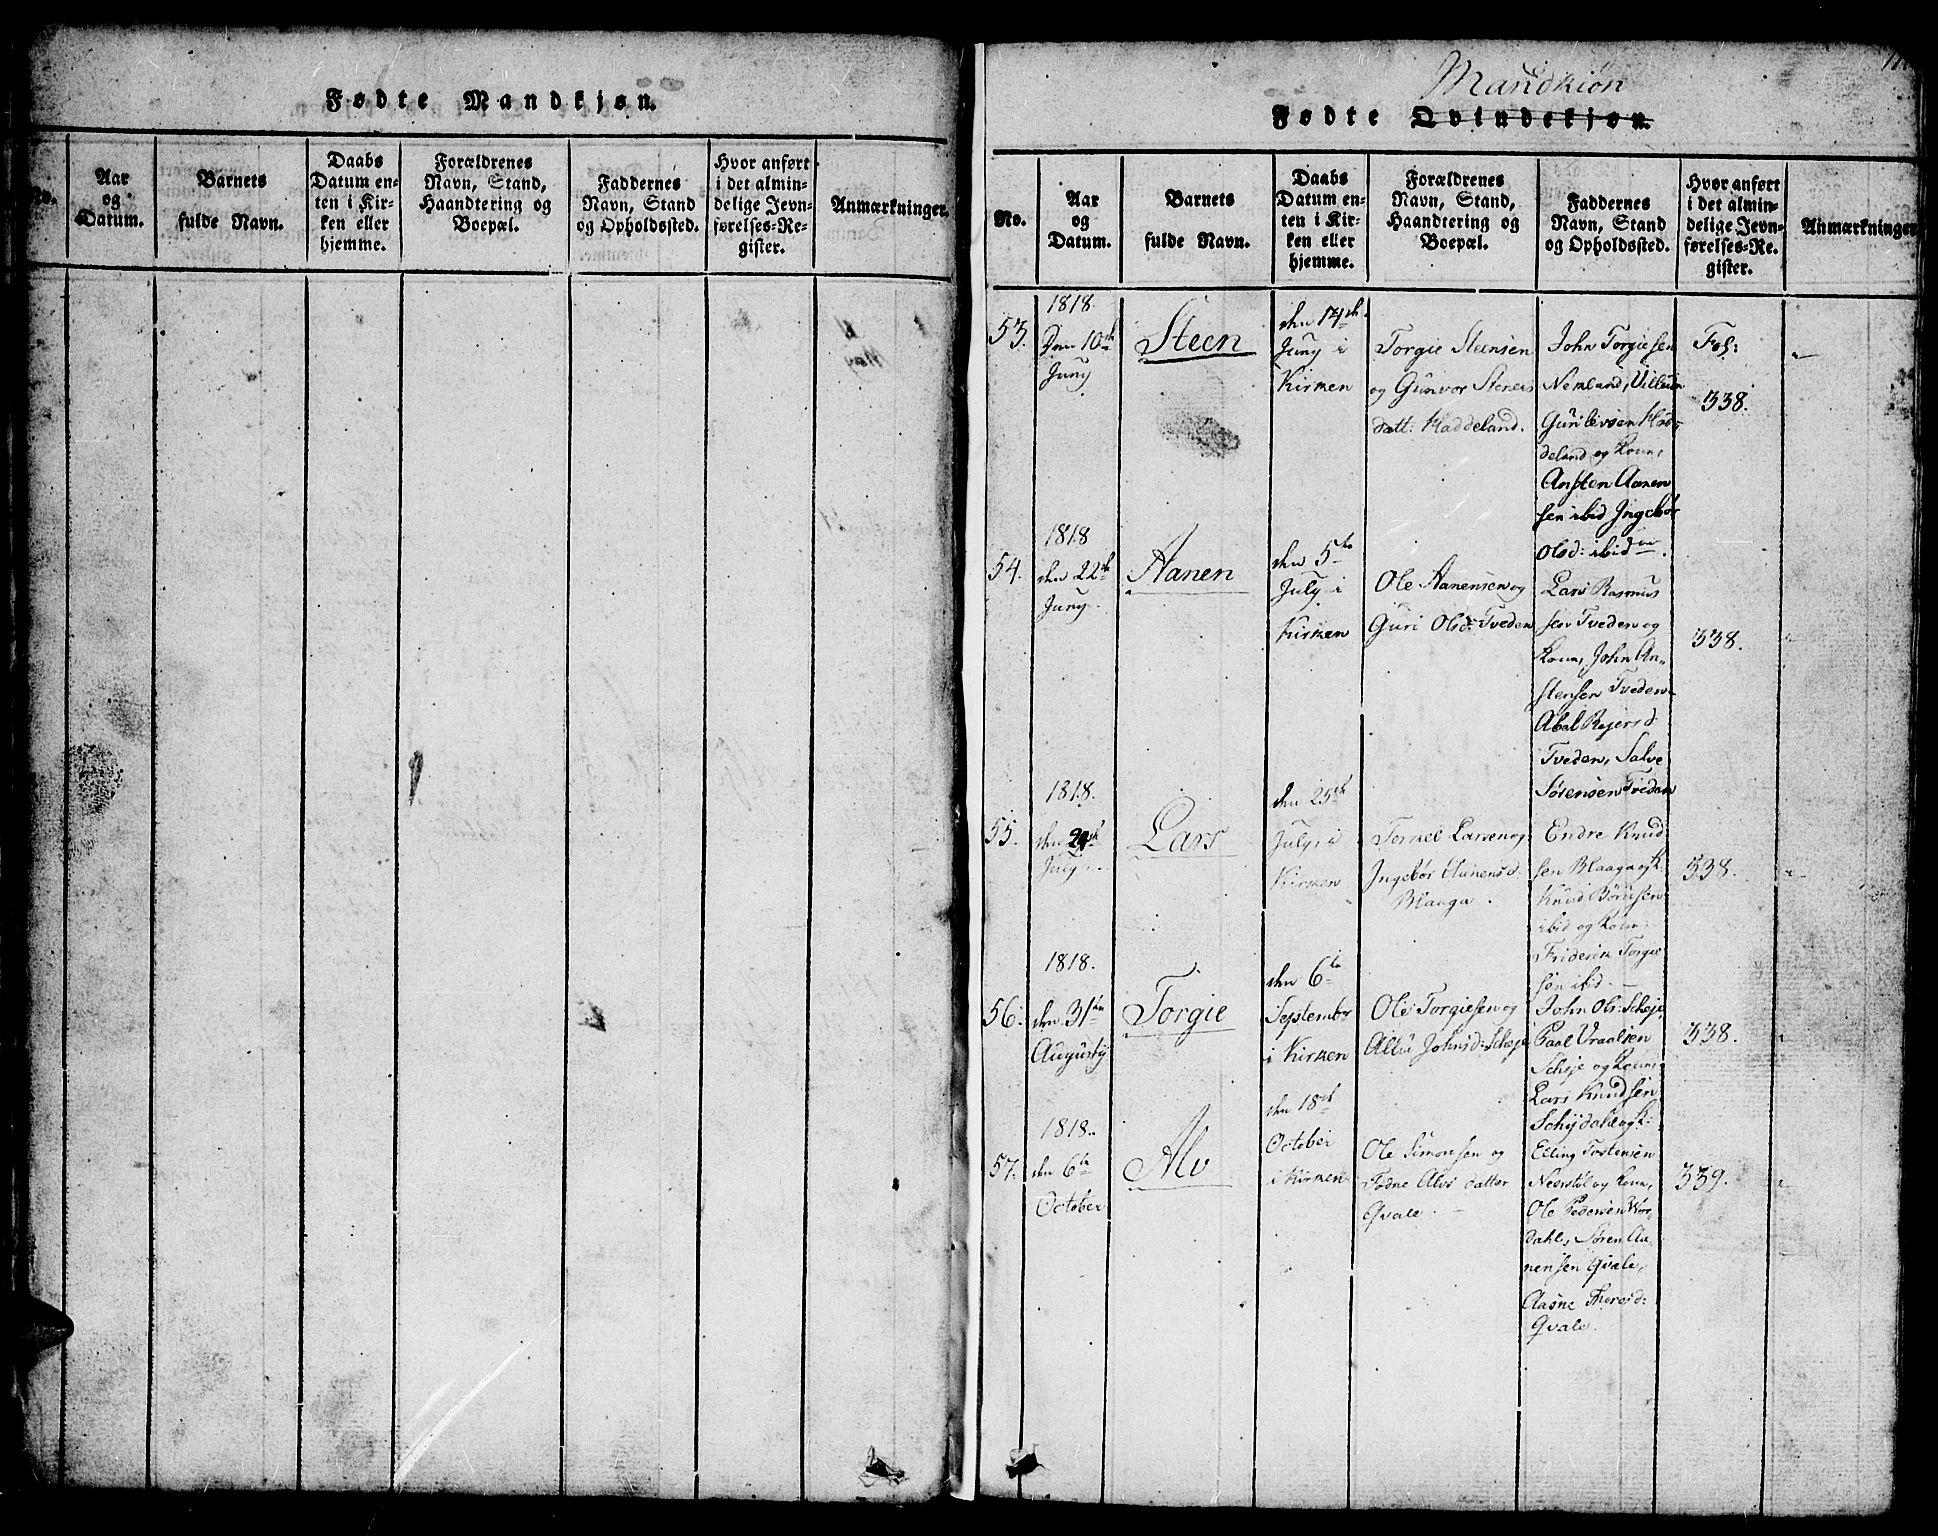 Fødte Mandkjøn.
No.
Aar
og
Datum.
Barnets
fulde Navn.
Daabs
Datum en-
ten i Kir-
ken eller
hjemme.
Forældrenes
Navn, Stand,
Haandtering og
Boepæl.
Faddernes
Navn, Stand
og Opholdssted.
Hvor anført
i det almin-
delige Jevn-
førelses-Re-
gister.
Anmærkninger.
Mandkiøn
Fødte Qvindekjøn.
No.
Aar
og
Datum.
Barnets
fulde Navn.
Daabs
Datum en-
ten i Kir-
ken eller
hjemme.
Forældrenes
Navn, Stand,
Haandtering og
Boepæl.
Faddernes
Navn, Stand
og Opholdssted.
Hvor anført
i det almin-
delige Jevn-
førelses-Re-
gister.
Anmærkninger
53.
1818.
Den 10de
Juny
Steen
den 14de
Juny i
Kirken
Torgie Steensen
og Gunvor Stenes
datt: Haddeland.
John Torgiesen
Nemland, Villum
Gunlevsen Had-
deland og Kone,
Ansten Aanen
sen ibid Ingebor
Olsd: ibid
Fol:
338.
54.
1818
den 22de
Juny.
Aanen
den 5te
July i
Kirken
Ole Aanensen og
Guri Olsd: Tveden
Lars Rasmus
sen Tveden og
Kone, John An-
stensen Tveden
Abel Rejersd
Tveden, Salve
Sørensen Tveden
338.
55.
1818.
den
July.
Lars
den 25de
July i
Kirken
Torkel Larsen og
Ingebor Aanensd.
Blaaga.
Endre Knud
sen Blaaga og K.
Knud Børusen
ibid og Kone
Friderik Torgie
sen ibid.
338.
56.
1818.
den 31te
Augusty
Torgie
den 6te
September
i Kirken
Ole Torgiesen og
Johnsd: Scheje
John Ols: Scheje,
Paal Vraalsen
Scheje og Kone,
Lars Knudsen
338.
57.
1818.
den 6te
October
Alv
den 18de
October
i Kirken
Ole Simonsen og
Todne Alvs datter
Qvale.
Elling Tostensen
Neerstøl og Kone,
Ole Pedersen Hør-
dahl, Søren Aa-
nensen Qvale,
Aasne Thorsd:
Qvale.
339.